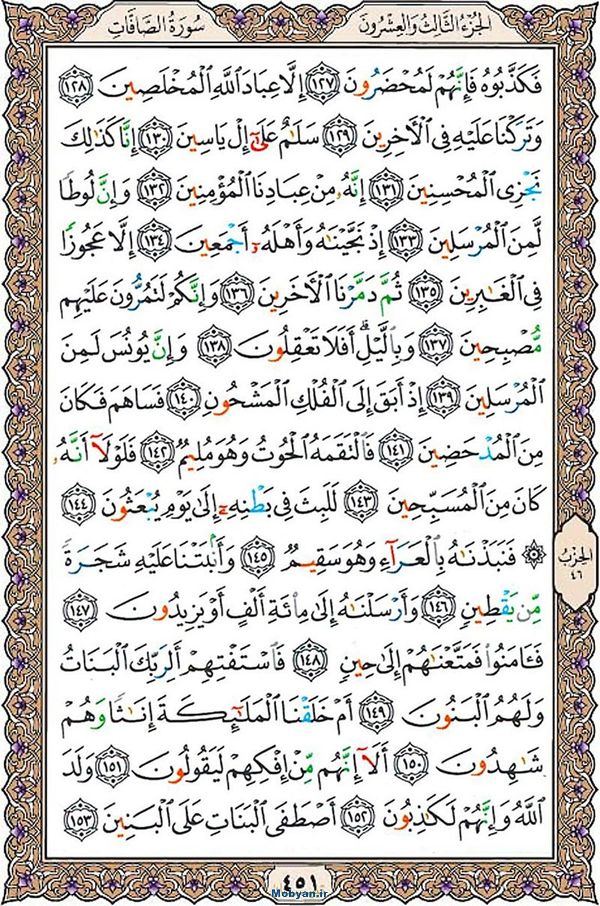 سُورَةُ الصَّافَّاتِ
الجُزْءُ الثَّالِثُ وَالعِشْرُونَ
فَكَذَّبُوهُ فَإِنَّهُمْ لَمُحْضَرُونَ ١٢٧ إِلَّا عِبَادَ ٱللَّهِ ٱلْمُخْلَصِينَ ١٢٨
وَتَرَكْنَا عَلَيْهِ فِى ٱلْأَخِرِينَ ١٢٩ سَلَٰمٌ عَلَىٰٓ إِلْ يَاسِينَ ١٣٠ إِنَّا كَذَٰلِكَ
نَجْزِى ٱلْمُحْسِنِينَ ١٣١ إِنَّهُۥ مِنْ عِبَادِنَا ٱلْمُؤْمِنِينَ ١٣٢ وَإِنَّ لُوطًا
لَّمِنَ ٱلْمُرْسَلِينَ ١٣٣ إِذْ نَجَّيْنَٰهُ وَأَهْلَهُۥٓ أَجْمَعِينَ ١٣٤ إِلَّا عَجُوزًا
فِى ٱلْغَٰبِرِينَ ١٣٥ ثُمَّ دَمَّرْنَا ٱلْأَخَرِينَ ١٣٦ وَإِنَّكُمْ لَتَمُرُّونَ عَلَيْهِم
مُّصْبِحِينَ ١٣٧ وَبِٱلَّيْلِ ۗ أَفَلَا تَعْقِلُونَ ١٣٨ وَإِنَّ يُونُسَ لَمِنَ
ٱلْمُرْسَلِينَ ١٣٩ إِذْ أَبَقَ إِلَى ٱلْفُلْكِ ٱلْمَشْحُونِ ١٤٠ فَسَاهَمَ فَكَانَ
مِنَ ٱلْمُدْحَضِينَ ١٤١ فَٱلْتَقَمَهُ ٱلْحُوتُ وَهُوَ مُلِيمٌ ١٤٢ فَلَوْلَآ أَنَّهُۥ
كَانَ مِنَ ٱلْمُسَبِّحِينَ ١٤٣ لَلَبِثَ فِى بَطْنِهِۦٓ إِلَىٰ يَوْمِ يُبْعَثُونَ ١٤٤
۞ فَنَبَذْنَٰهُ بِٱلْعَرَآءِ وَهُوَ سَقِيمٌ ١٤٥ وَأَنۢبَتْنَا عَلَيْهِ شَجَرَةً
مِّن يَقْطِينٍ ١٤٦ وَأَرْسَلْنَٰهُ إِلَىٰ مِا۟ئَةِ أَلْفٍ أَوْ يَزِيدُونَ ١٤٧
فَـَٔامَنُوا۟ فَمَتَّعْنَٰهُمْ إِلَىٰ حِينٍ ١٤٨ فَٱسْتَفْتِهِمْ أَلِرَبِّكَ ٱلْبَنَاتُ
وَلَهُمُ ٱلْبَنُونَ ١٤٩ أَمْ خَلَقْنَا ٱلْمَلَٰٓئِكَةَ إِنَٰثًا وَهُمْ
شَٰهِدُونَ ١٥٠ أَلَآ إِنَّهُم مِّنْ إِفْكِهِمْ لَيَقُولُونَ ١٥١ وَلَدَ
ٱللَّهُ وَإِنَّهُمْ لَكَٰذِبُونَ ١٥٢ أَصْطَفَى ٱلْبَنَاتِ عَلَى ٱلْبَنِينَ ١٥٣
الحِزْبُ
٤٦
٤٥١
Mobyan.ir